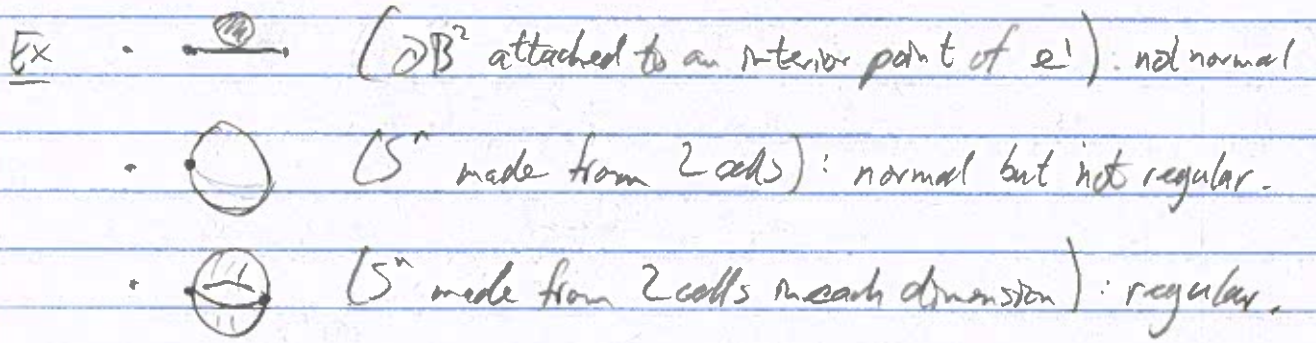 Ex · (∂B² attached to an interior point of e¹): not normal
· (Sⁿ made from 2 cells): normal but not regular.
· (Sⁿ made from 2 cells in each dimension): regular.